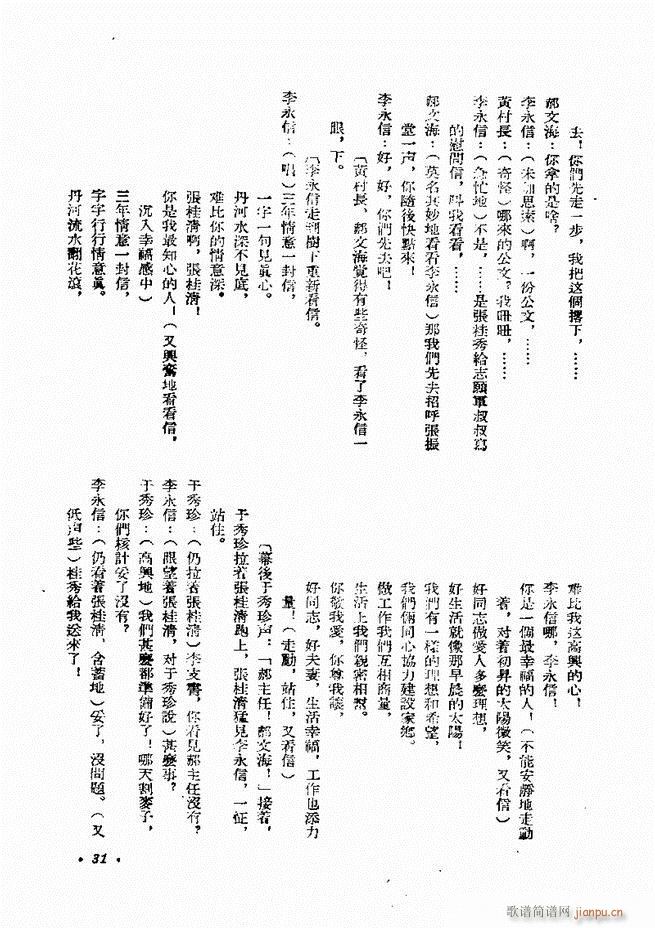 去！你們先走一步，我把這個撂下，……
郝文海：你拿的是啥？
李永信：（未加思索）啊，一份公文，……
黃村長：（奇怪）哪來的公文？我䀝䀝，……
李永信：（急忙地）不是，……是張桂秀給志願軍叔叔寫
的慰問信，叫我看看，……
郝文海：（莫名其妙地看看李永信）那我們先去招呼張振
堂一声，你隨後快點來！
李永信：好，好，你們先去吧！
〔黃村長、郝文海覺得有些奇怪，看了李永信一
眼，下。
〔李永信走到樹下重新看信。
李永信：（唱）三年情意一封信，
一字一句見眞心。
丹河水深不見底，
難比你的情意深。
張桂清啊，張桂清！
你是我最知心的人！（又興奮地看看信，
沉入幸福感中）
三年情意一封信，
字字行行情意眞。
丹河流水翻花滾，
難比我這高興的心！
李永信哪，李永信！
你是一個最幸福的人！（不能安靜地走動
着，对着初昇的太陽微笑，又看信）
好同志做愛人多麼理想，
好生活就像那早晨的太陽！
我們有一樣的理想和希望，
我們倆同心協力建設家鄉。
做工作我們互相商量，
生活上我們親密相幫。
你敬我愛，你尊我讓，
好同志，好夫妻，生活幸福，工作也添力
量！（走動，站住，又看信）
〔幕後于秀珍声：「郝主任！郝文海！」接着，
于秀珍拉着張桂清跑上，張桂清猛見李永信，一怔，
站住。
于秀珍：（仍拉着張桂清）李支書，你看見郝主任沒有？
李永信：（眼望着張桂清，对于秀珍說）甚麼事？
于秀珍：（高興地）我們甚麼都準備好了！哪天割麥子，
你們核計妥了沒有？
李永信：（仍看着張桂清，含蓄地）妥了，沒問題。（又
低声些）桂秀給我送來了！
• 31 •
歌谱简谱网 jianpu.cn